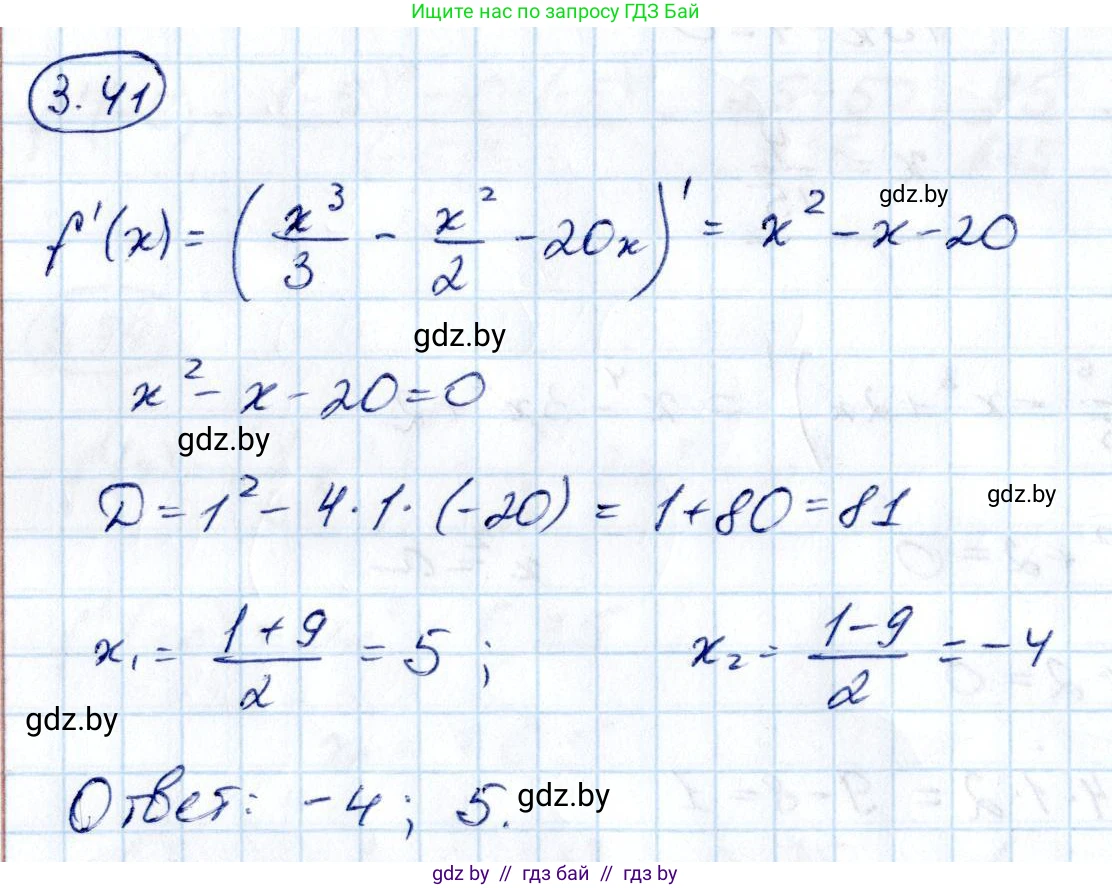 Ищите нас по запросу ГДЗ Бай
3.41
f'(x) = (x³/3 - x²/2 - 20x)' = x² - x - 20
gdz.by
gdz.by
x² - x - 20 = 0
gdz.by
D = 1² - 4·1·(-20) = 1 + 80 = 81
gdz.by
x₁ = (1+9)/2 = 5; x₂ = (1-9)/2 = -4
gdz.by
Ответ: -4; 5.
gdz.by
gdz.by // гдз бай // гдз by